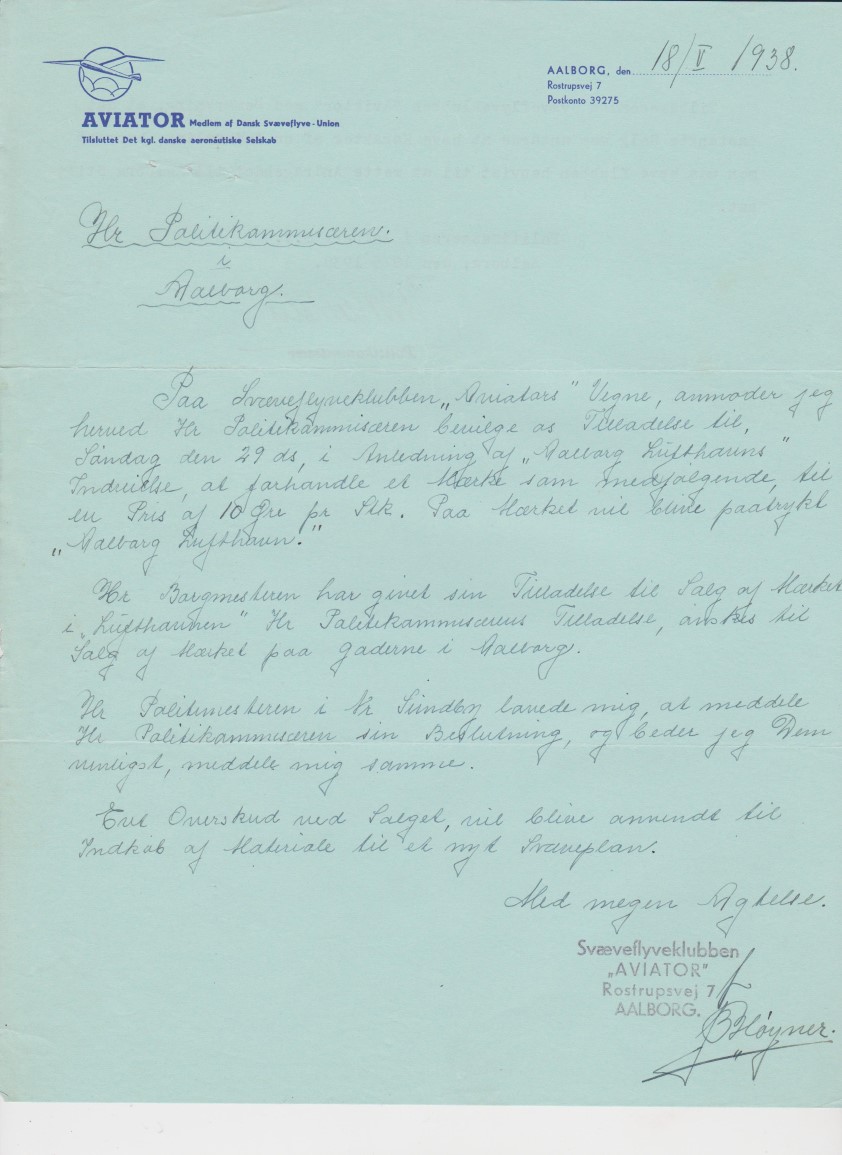 AALBORG, den 18/V 1938.
Rostrupsvej 7
Postkonto 39275
AVIATOR Medlem af Dansk Svæveflyve-Union
Tilsluttet Det kgl. danske aeronautiske Selskab
Hr Politikammisæren.
i
Aalborg.
Paa Svæveflyveklubben „Aviators" Vegne, anmoder jeg
herved Hr Politikammisæren bevilge os Tilladelse til,
Søndag den 29 ds, i Anledning af „Aalborg Lufthavns"
Indvielse, at forhandle et Mærke som medfølgende, til
en Pris af 10 Øre pr Stk. Paa Mærket vil blive paatrykt
„Aalborg Lufthavn."
Hr Borgmesteren har givet sin Tilladelse til Salg af Mærker
i „Lufthavnen" Hr Politikammisærens Tilladelse, ønskes til
Salg af Mærket paa Gaderne i Aalborg.
Hr Politimesteren i Nr Sundby lovede mig, at meddele
Hr Politikammisæren sin Beslutning, og beder jeg Dem
venligst, meddele mig samme.
Evt Overskud ved Salget, vil blive anvendt til
Indkøb af Materiale til et nyt Svæveplan.
Med megen Agtelse.
Svæveflyveklubben
„AVIATOR"
Rostrupsvej 7
AALBORG.